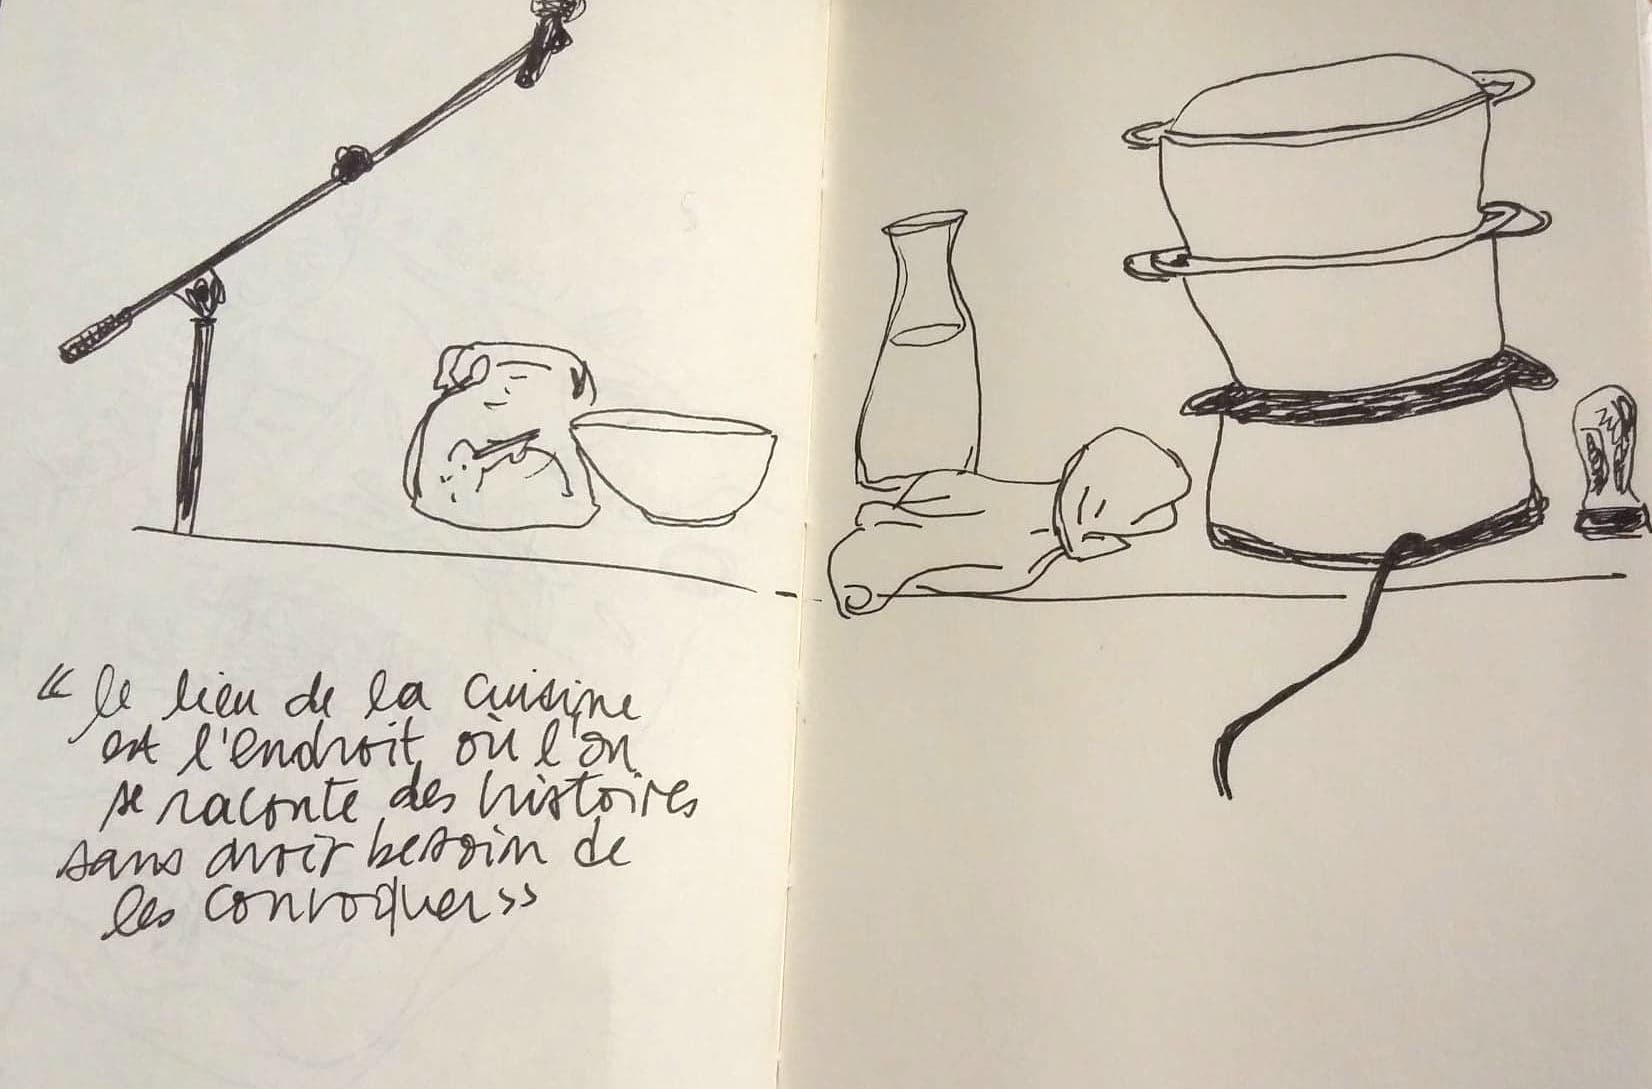 « le lieu de la cuisine
est l'endroit où l'on
se raconte des histoires
sans avoir besoin de
les convoquer »